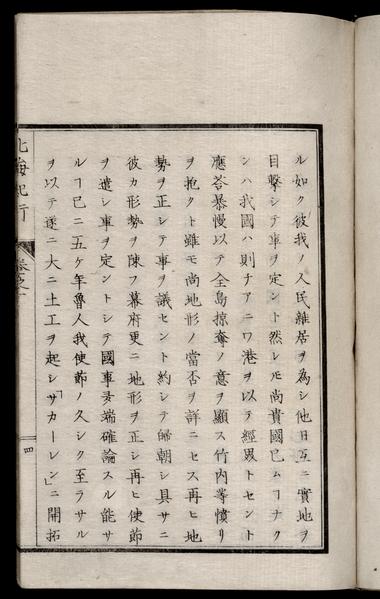 ル如ク彼我ノ人民雑居ヲ為シ他日互ニ實地ヲ
目撃シテ事ヲ定ント然レモ尚貴國已ムヿナク
ンハ我國ハ則チアニワ港ヲ以テ經界トセント
應荅暴慢以テ全島掠奪ノ意ヲ顯ス竹内等憤リ
ヲ抱クト雖モ尚地形ノ當否ヲ詳ニセス再ヒ地
勢ヲ正シテ事ヲ議セント約シテ歸朝シ具サニ
彼カ形勢ヲ陳フ幕府更ニ地形ヲ正シ再ヒ使節
ヲ遣シ事ヲ定ントシテ國事多端確論スル能サ
ルヿ已ニ五ケ年魯人我使節ノ久シク至ラサル
ヲ以テ遂ニ大ニ土工ヲ起シ「サカーレン」ニ開拓
北海紀行
四